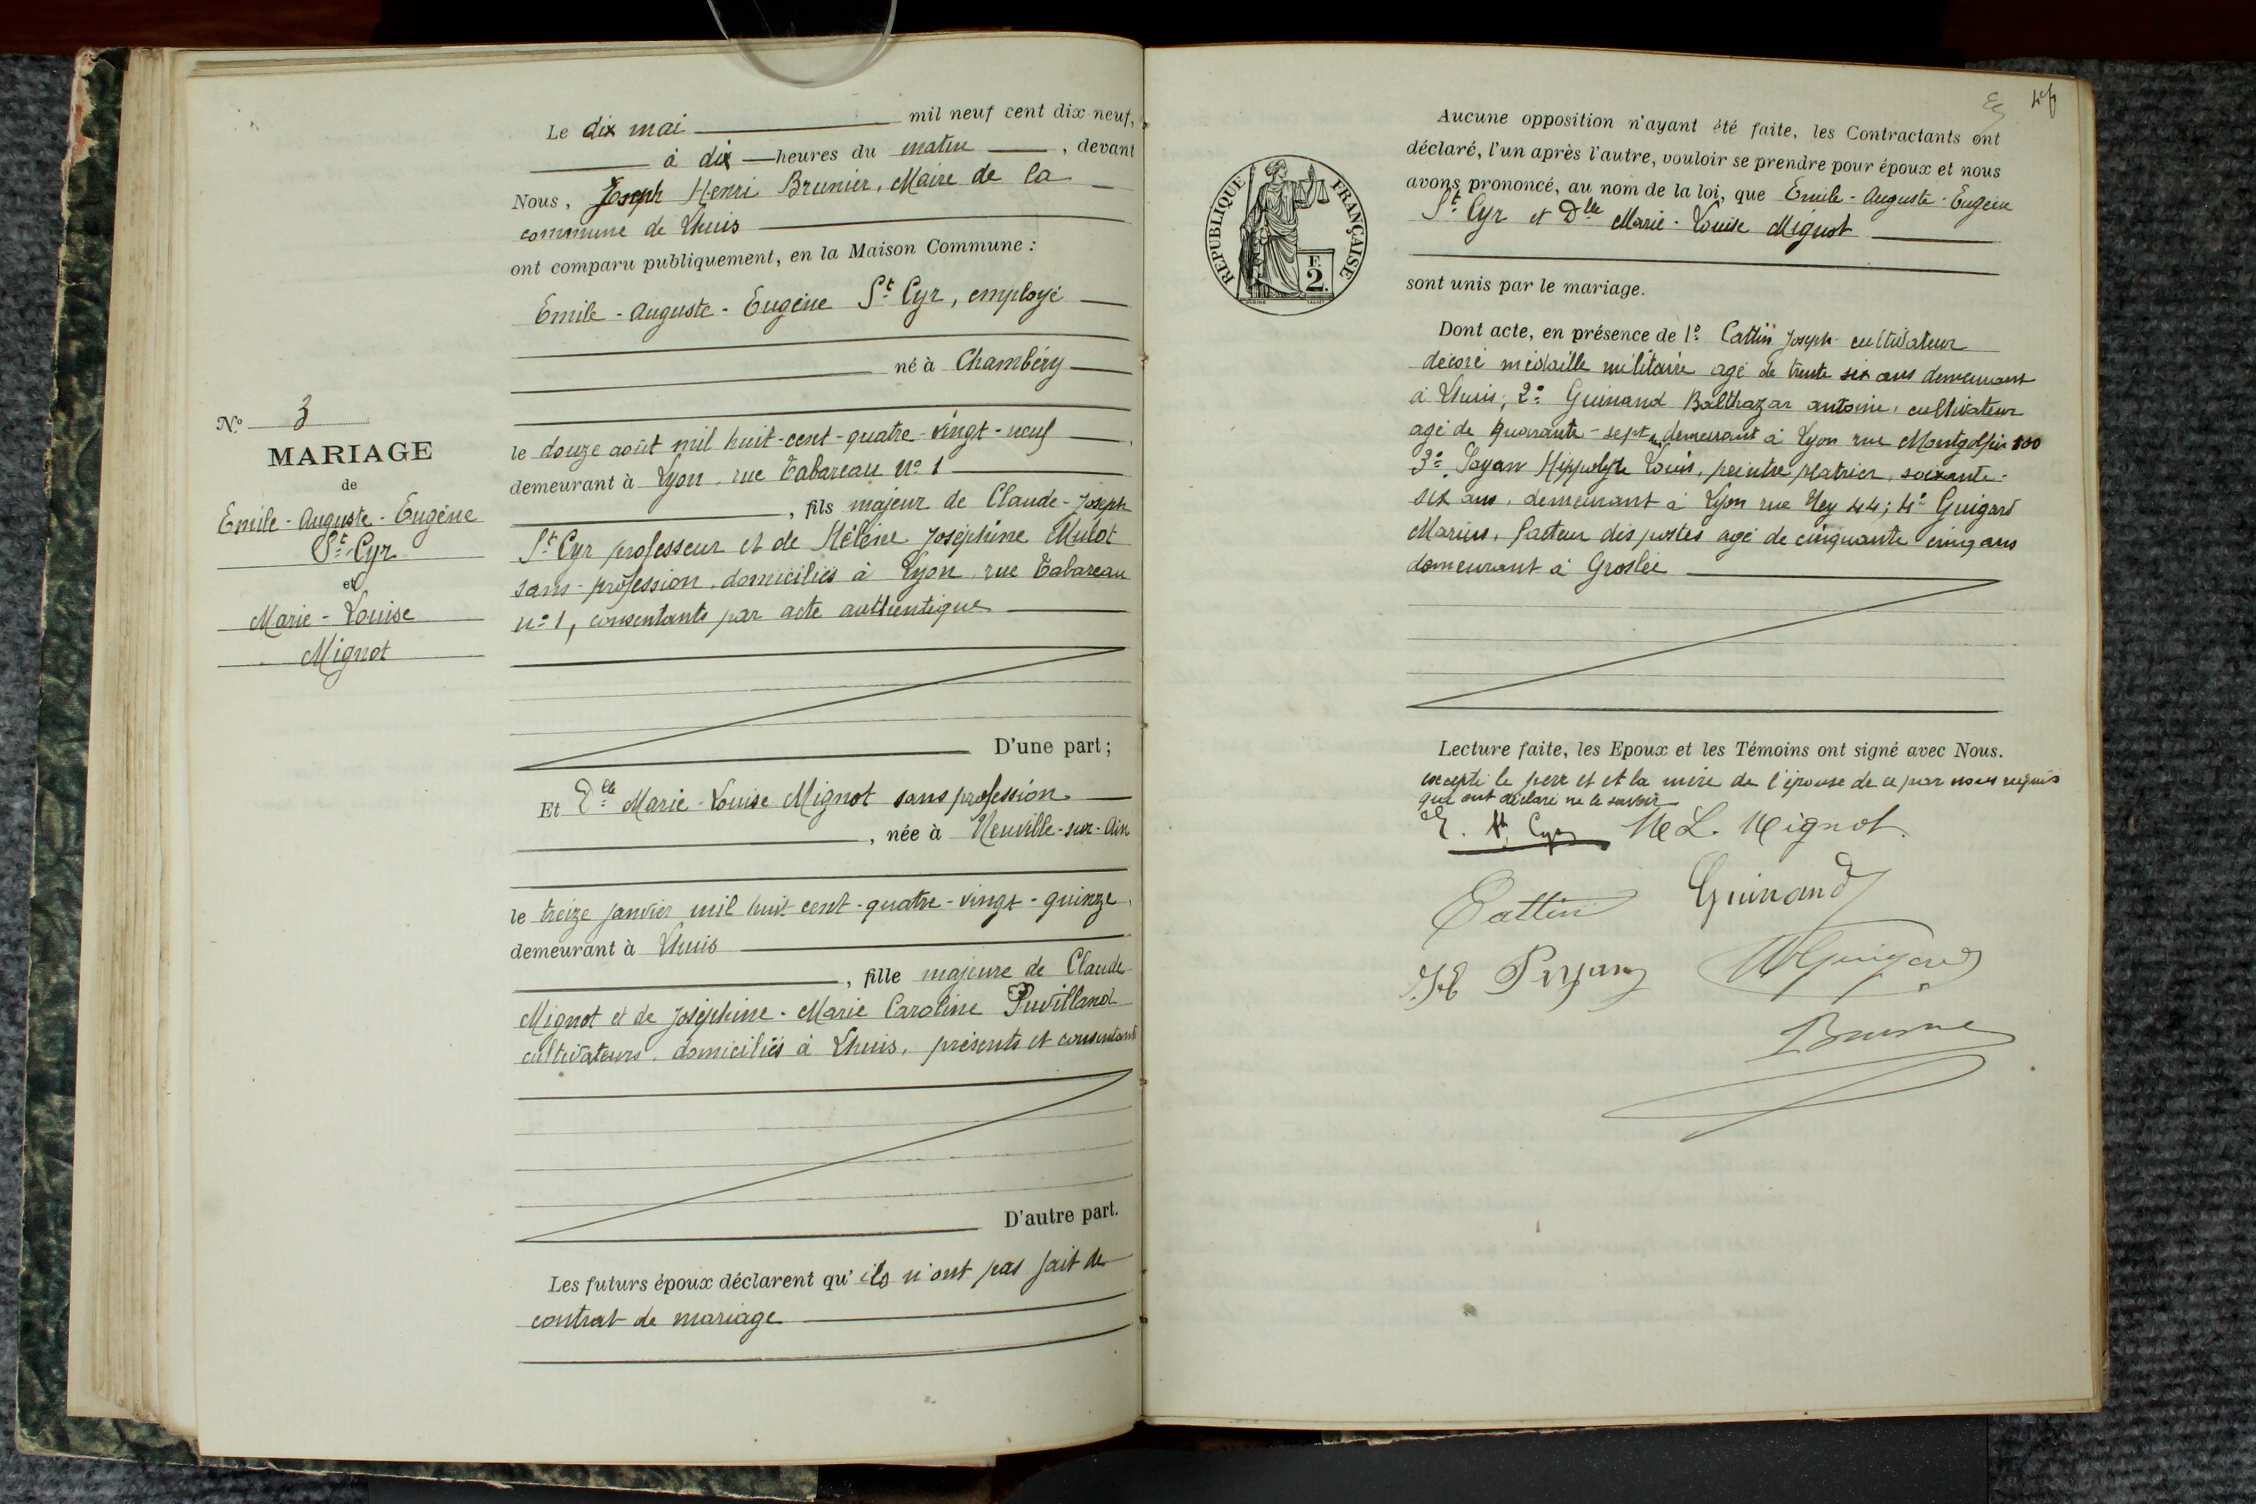 Le dix mai mil neuf cent dix neuf,
à dix heures du matin, devant
Nous, Joseph Henri Brunier, Maire de la
commune de Lhuis
ont comparu publiquement, en la Maison Commune :
Emile - Auguste - Eugène St Cyr, employé
né à Chambéry
le douze août mil huit-cent-quatre-vingt-neuf
demeurant à Lyon, rue Tabareau no 1
, fils majeur de Claude-Joseph
St Cyr professeur et de Hélène Joséphine Mulot
sans-profession, domiciliés à Lyon, rue Tabareau
no 1, consentants par acte authentique
D'une part;
No 3
MARIAGE
de
Emile - Auguste - Eugène
St Cyr
et
Marie - Louise
Mignot
Et Dlle Marie-Louise Mignot sans profession
, née à Neuville-sur-Ain
le treize janvier mil huit cent-quatre-vingt-quinze,
demeurant à Lhuis
, fille majeure de Claude
Mignot et de Joséphine-Marie Caroline Puvilland
cultivateurs, domiciliés à Lhuis, présents et consentants
D'autre part.
Les futurs époux déclarent qu'ils n'ont pas fait de
contrat de mariage
Aucune opposition n'ayant été faite, les Contractants ont
déclaré, l'un après l'autre, vouloir se prendre pour époux et nous
avons prononcé, au nom de la loi, que Emile-Auguste-Eugène
St Cyr et Dlle Marie-Louise Mignot
sont unis par le mariage.
RÉPUBLIQUE FRANÇAISE
F.
2.
Dont acte, en présence de 1o Cattin Joseph cultivateur
décoré médaille militaire agé de trente six ans demeurant
à Lhuis; 2o Guinand Balthazar antoine, cultivateur
agé de quarante-sept, demeurant à Lyon rue Montgolfier 100
3o Payan Hippolyte Louis, peintre platrier, soixante-
six ans, demeurant à Lyon rue Ney 44; 4o Guigard
Marius, facteur des postes agé de cinquante cinq ans
demeurant à Groslée
Lecture faite, les Epoux et les Témoins ont signé avec Nous.
excepté le père et et la mère de l'épouse de ce par nous requis
qui ont déclaré ne le savoir
E. St Cyr M L. Mignot
Cattin Guinand
Payan M Guigard
Brunier